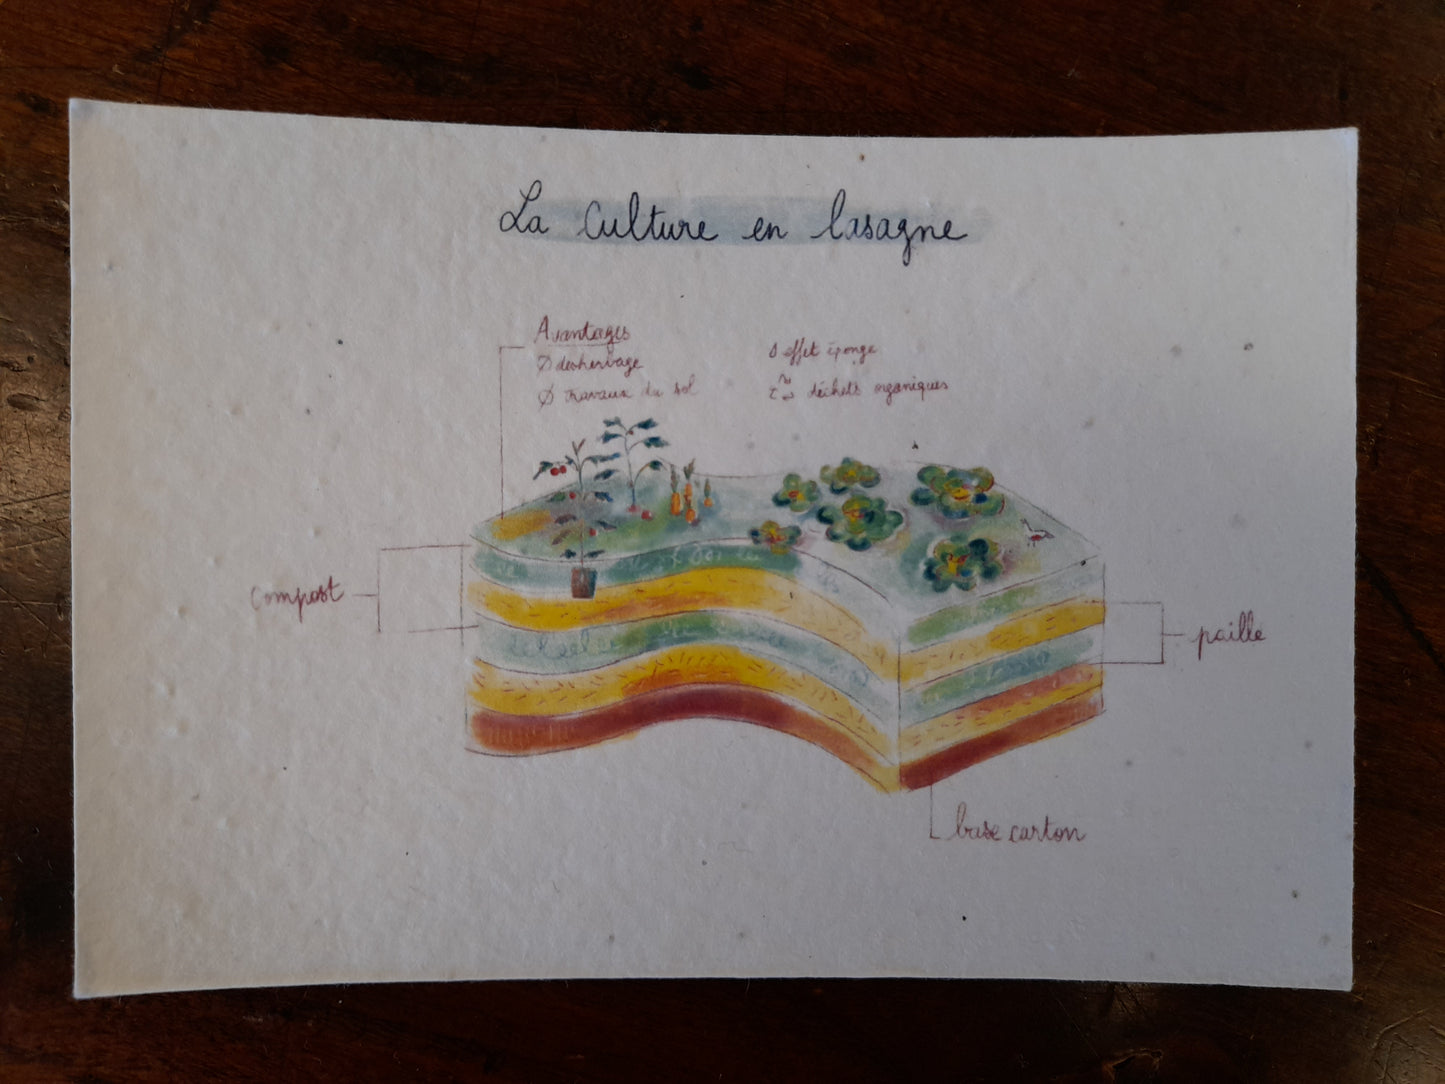 La Culture en lasagne
Avantages
Ø desherbage
Ø travaux du sol
effet éponge
déchets organiques
compost
paille
base carton